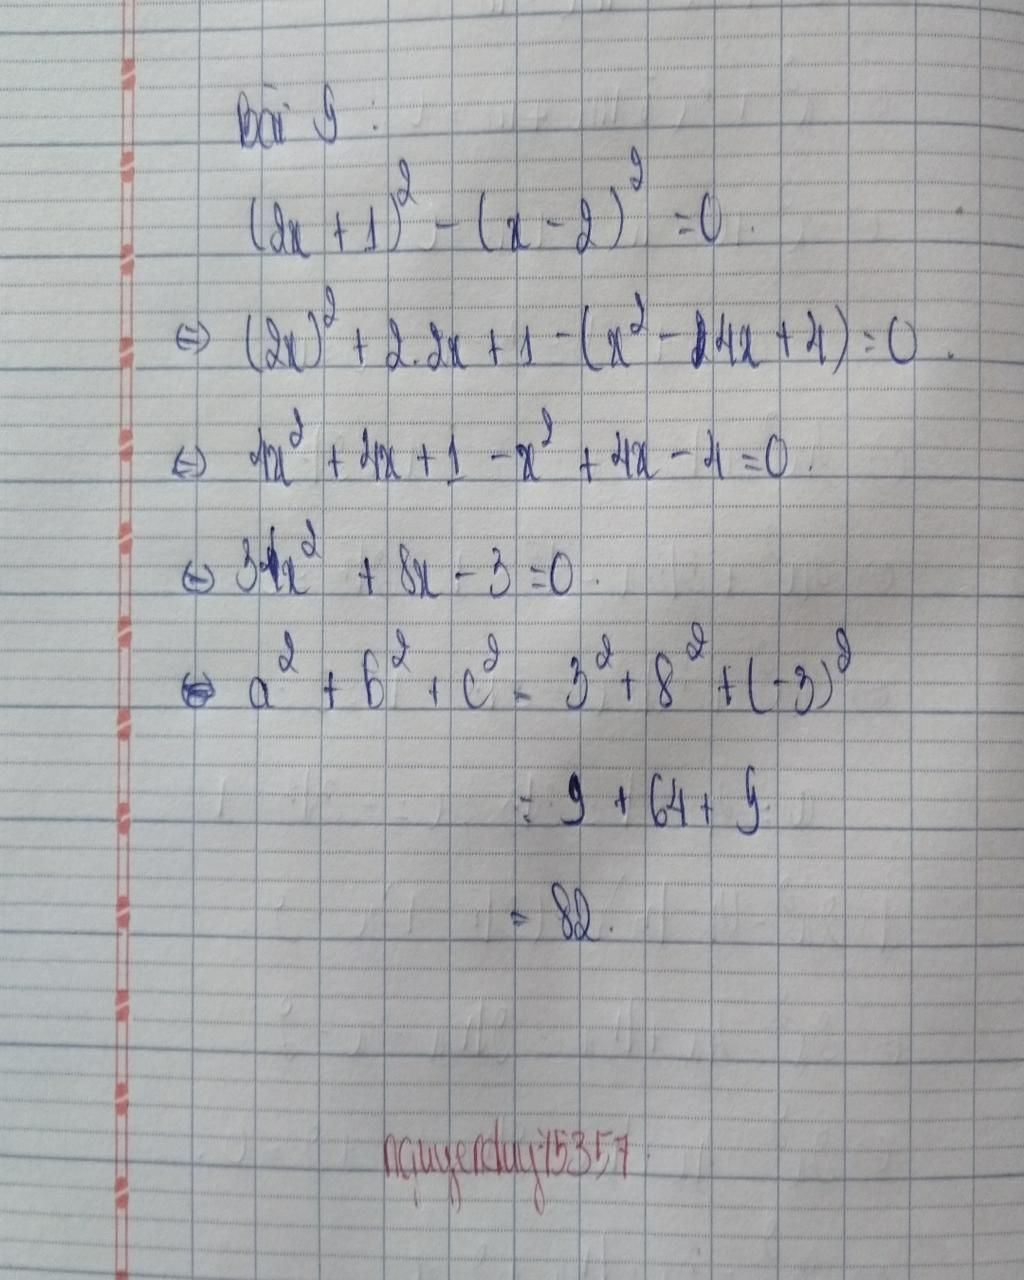 Bài 9 :
(2x + 1)² - (x - 2)² = 0 .
⇔ (2x)² + 2.2x + 1 - (x² - 4x + 4) = 0 .
⇔ 4x² + 4x + 1 - x² + 4x - 4 = 0 .
⇔ 3x² + 8x - 3 = 0 .
a² + b² + c² = 3² + 8² + (-3)²
= 9 + 64 + 9
= 82.
nguyenduy15357